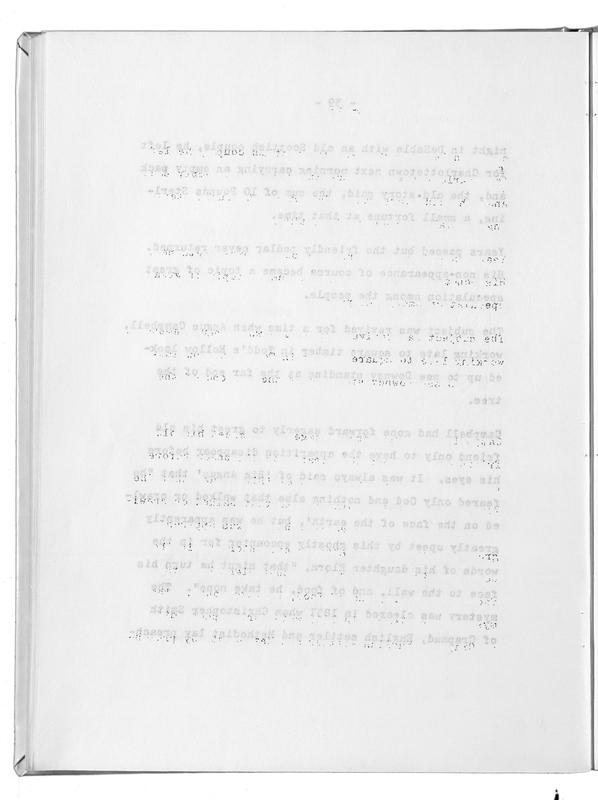 - 39 -
night in DeSable with an old Scottish couple, he left
for Charlottetown next morning carrying an empty pack
and, the old story said, the sum of 10 Pounds Sterl-
ing, a small fortune at that time.
Years passed but the friendly pedlar never returned.
His non-appearance of course became a topic of great
speculation among the people.
The subject was revived for a time when Angus Campbell,
working late to square timber in Todd's Hollow look-
ed up to see Downey standing at the far end of the
tree.
Campbell had gone forward eagerly to greet his old
friend only to have the apparition disappear before
his eyes. It was always said of 'Big Angus' that "he
feared only God and nothing else that walked or crawl-
ed on the face of the earth", but he was apparently
greatly upset by this ghostly encounter for in the
words of his daughter Flora, "that night he turn his
face to the wall, and of food, he take none". The
mystery was cleared in 1837 when Christopher Smith
of Crapaud, English settler and Methodist lay preach-